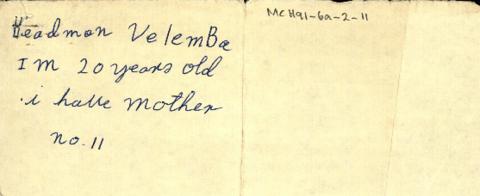 Deadmon Velemba
I m 20 years old
i have mother
no. 11
MCH91-6a-2-11